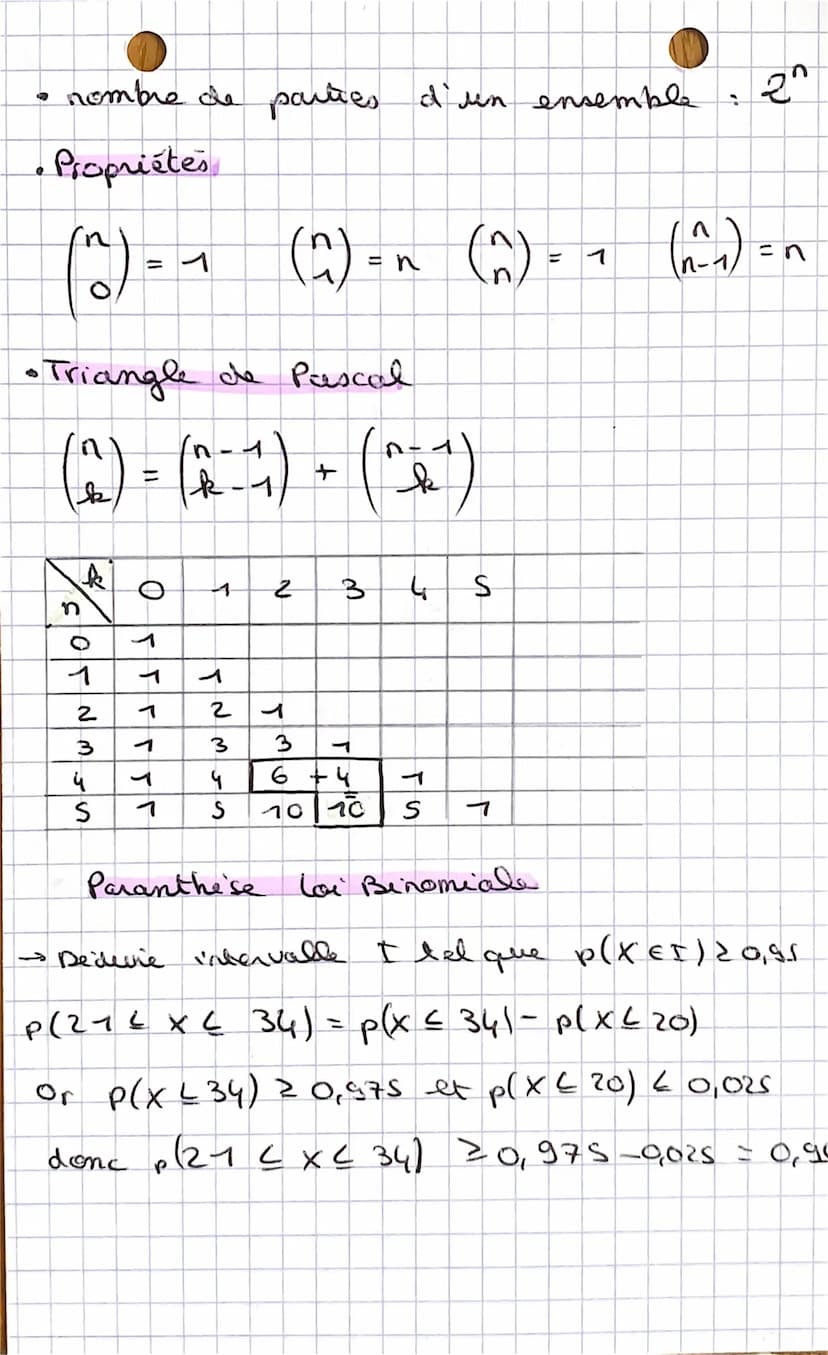 • nombre de parties d'un ensemble : 2ⁿ
• Propriétés
(n 0) = 1 (n 1) = n (n n) = 1 (n n-1) = n
• Triangle de Pascal
(n k) = (n-1 k-1) + (n-1 k)
n\k 0 1 2 3 4 5
0 1
1 1 1
2 1 2 1
3 1 3 3 1
4 1 4 6 + 4 1
5 1 5 10 = 10 5 1
Paranthèse Loi Binomiale
→ Déduire intervalle I tel que p(X ∈ I) ≥ 0,95
p(21 ≤ X ≤ 34) = p(X ≤ 34) - p(X ≤ 20)
Or p(X ≤ 34) ≥ 0,975 et p(X ≤ 20) ≤ 0,025
donc p(21 ≤ X ≤ 34) ≥ 0,975 - 0,025 = 0,9